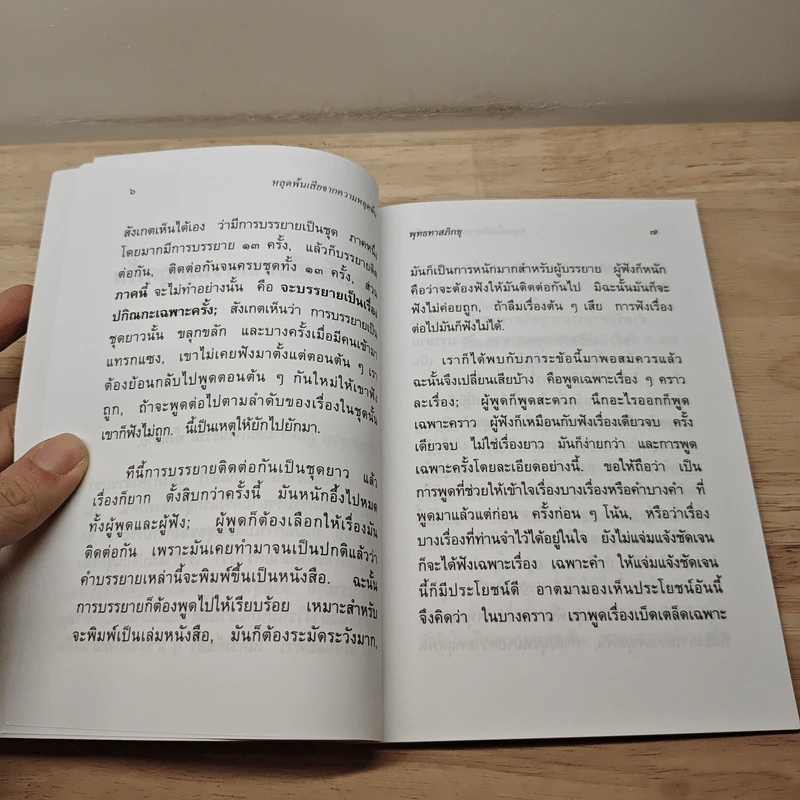 ๖
หลุดพ้นเสียจากความหลุดพ้น
สังเกตเห็นได้เอง ว่ามีการบรรยายเป็นชุด ภาคหนึ่ง
โดยมากมีการบรรยาย ๑๓ ครั้ง, แล้วก็บรรยายติด
ต่อกัน, ติดต่อกันจนครบชุดทั้ง ๑๓ ครั้ง, ส่วน
ภาคนี้ จะไม่ทำอย่างนั้น คือ จะบรรยายเป็นเรื่อง
ปกิณกะเฉพาะครั้ง; สังเกตเห็นว่า การบรรยายเป็น
ชุดยาวนั้น ขลุกขลัก และบางครั้งเมื่อมีคนเข้ามา
แทรกแซง, เขาไม่เคยฟังมาตั้งแต่ตอนต้น ๆ เรา
ต้องย้อนกลับไปพูดตอนต้น ๆ กันใหม่ให้เขาฟัง
ถูก, ถ้าจะพูดต่อไปตามลำดับของเรื่องในชุดนั้น
เขาก็ฟังไม่ถูก. นี้เป็นเหตุให้ยักไปยักมา.
ทีนี้การบรรยายติดต่อกันเป็นชุดยาว แล้ว
เรื่องก็ยาก ตั้งสิบกว่าครั้งนี้ มันหนักอึ้งไปหมด
ทั้งผู้พูดและผู้ฟัง; ผู้พูดก็ต้องเลือกให้เรื่องมัน
ติดต่อกัน เพราะมันเคยทำมาจนเป็นปกติแล้วว่า
คำบรรยายเหล่านี้จะพิมพ์ขึ้นเป็นหนังสือ. ฉะนั้น
การบรรยายก็ต้องพูดไปให้เรียบร้อย เหมาะสำหรับ
จะพิมพ์เป็นเล่มหนังสือ, มันก็ต้องระมัดระวังมาก,
พุทธทาสภิกขุ
๗
มันก็เป็นการหนักมากสำหรับผู้บรรยาย ผู้ฟังก็หนัก
คือว่าจะต้องฟังให้มันติดต่อกันไป มิฉะนั้นมันก็จะ
ฟังไม่ค่อยถูก, ถ้าลืมเรื่องต้น ๆ เสีย การฟังเรื่อง
ต่อไปมันก็ฟังไม่ได้.
เราก็ได้พบกับภาระข้อนี้มาพอสมควรแล้ว
ฉะนั้นจึงเปลี่ยนเสียบ้าง คือพูดเฉพาะเรื่อง ๆ คราว
ละเรื่อง; ผู้พูดก็พูดสะดวก นึกอะไรออกก็พูด
เฉพาะคราว ผู้ฟังก็เหมือนกับฟังเรื่องเดียวจบ ครั้ง
เดียวจบ ไม่ใช่เรื่องยาว มันก็ง่ายกว่า และการพูด
เฉพาะครั้งโดยละเอียดอย่างนี้. ขอให้ถือว่า เป็น
การพูดที่ช่วยให้เข้าใจเรื่องบางเรื่องหรือคำบางคำ ที่
พูดมาแล้วแต่ก่อน ครั้งก่อน ๆ โน้น, หรือว่าเรื่อง
บางเรื่องที่ท่านจำไว้ได้อยู่ในใจ ยังไม่แจ่มแจ้งชัดเจน
ก็จะได้ฟังเฉพาะเรื่อง เฉพาะคำ ให้แจ่มแจ้งชัดเจน
นี้ก็มีประโยชน์ดี อาตมามองเห็นประโยชน์อันนี้
จึงคิดว่า ในบางคราว เราพูดเรื่องเบ็ดเตล็ดเฉพาะ